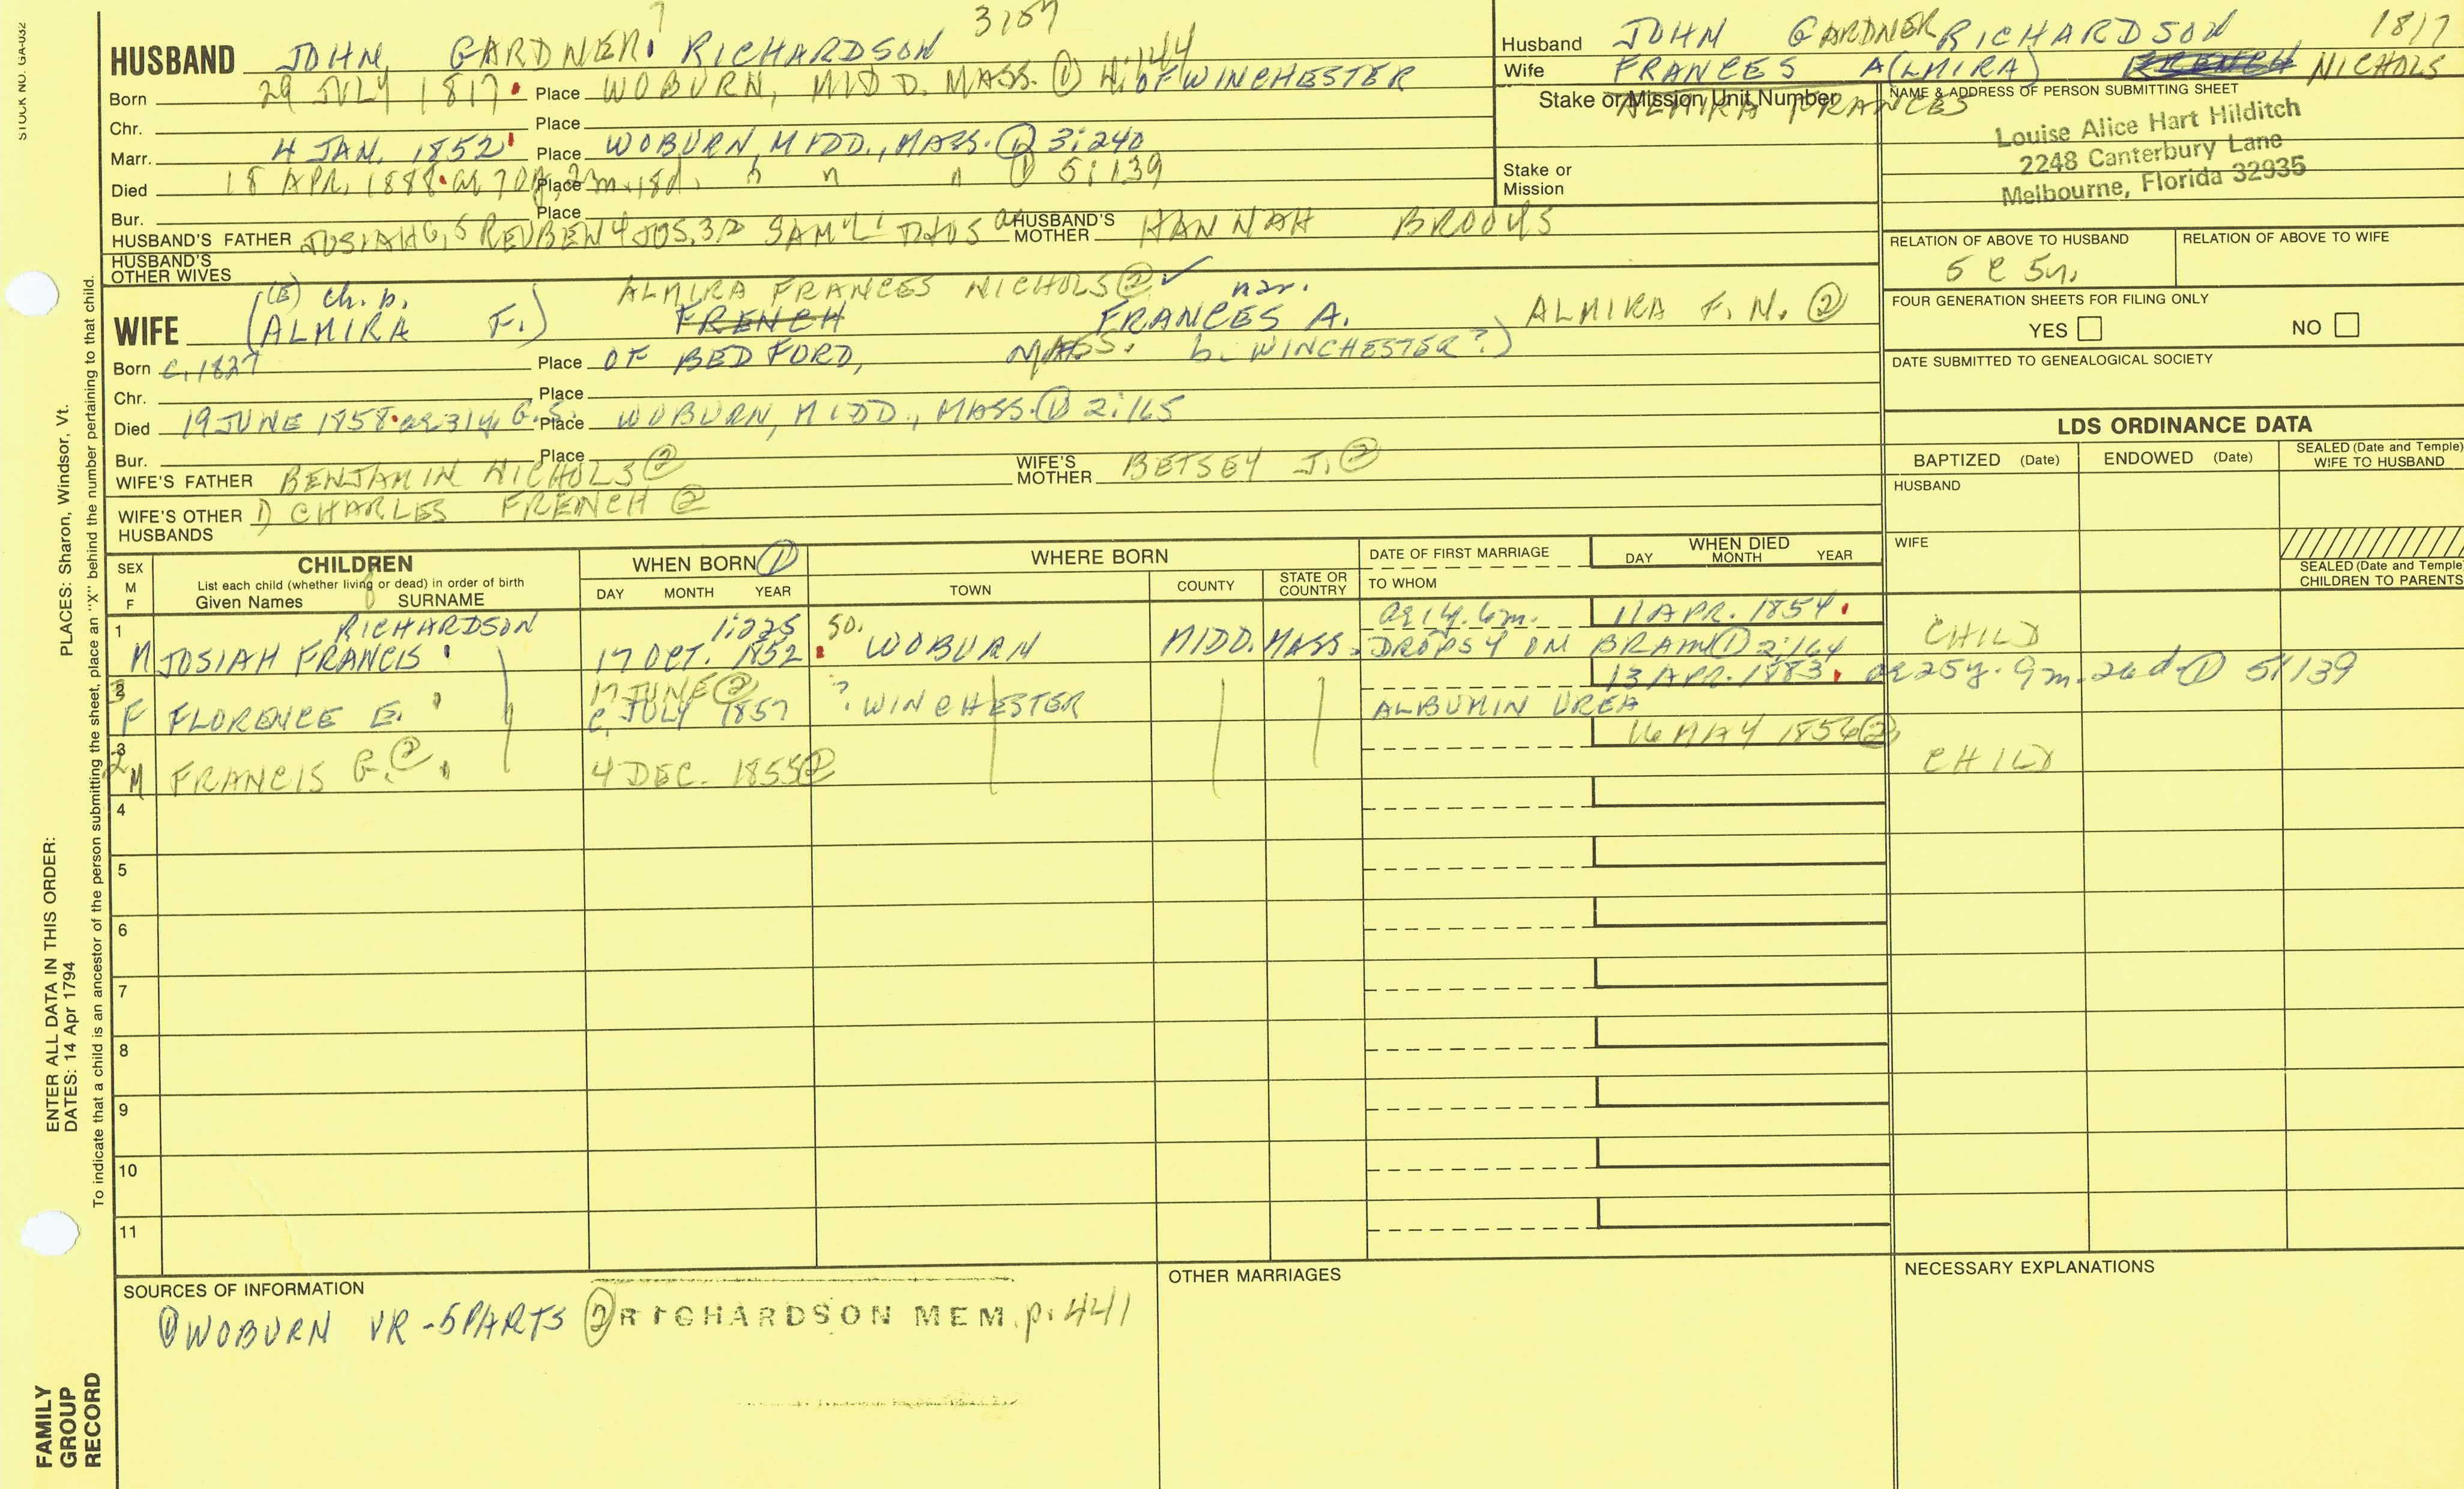 STOCK NO. GA-032
3157
HUSBAND JOHN GARDNER RICHARDSON
Born 29 JULY 1817 Place WOBURN, MIDD. MASS. ① OF WINCHESTER
Chr. Place
Marr. 4 JAN. 1852 Place WOBURN, MIDD., MASS. ① 3:240
Died 18 APR. 1888 Place " " " ① 5:139
Bur. Place
HUSBAND'S FATHER HUSBAND'S MOTHER HANNAH BROOKS
HUSBAND'S OTHER WIVES
ch. b. ALMIRA FRANCES NICHOLS ② ✓ mar.
WIFE (ALMIRA F.) FRENCH FRANCES A. ALMIRA F. N. ②
Born c. 1827 Place OF BEDFORD, MASS. b. WINCHESTER?)
Chr. Place
Died 19 JUNE 1858 ae 31 y. G.S. Place WOBURN, MIDD., MASS. ① 2:165
Bur. Place
WIFE'S FATHER BENJAMIN NICHOLS ② WIFE'S MOTHER BETSEY J. ②
WIFE'S OTHER HUSBANDS 1) CHARLES FRENCH ②
Husband JOHN GARDNER RICHARDSON 1817
Wife FRANCES A(LMIRA) FRENCH NICHOLS
ALMIRA FRANCES
Stake or Mission Unit Number
Stake or Mission
NAME & ADDRESS OF PERSON SUBMITTING SHEET
Louise Alice Hart Hilditch
2248 Canterbury Lane
Melbourne, Florida 32935
RELATION OF ABOVE TO HUSBAND RELATION OF ABOVE TO WIFE
5 C 5 r.
FOUR GENERATION SHEETS FOR FILING ONLY
YES NO
DATE SUBMITTED TO GENEALOGICAL SOCIETY
LDS ORDINANCE DATA
BAPTIZED (Date) ENDOWED (Date) SEALED (Date and Temple) WIFE TO HUSBAND
HUSBAND
WIFE
SEALED (Date and Temple) CHILDREN TO PARENTS
SEX M F
CHILDREN
List each child (whether living or dead) in order of birth
Given Names SURNAME
WHEN BORN ①
DAY MONTH YEAR
WHERE BORN
TOWN COUNTY STATE OR COUNTRY
DATE OF FIRST MARRIAGE
TO WHOM
WHEN DIED
DAY MONTH YEAR
1 RICHARDSON 1:225 SO. ae 1 y. 6 m. 11 APR. 1854
M JOSIAH FRANCIS 17 OCT. 1852 WOBURN MIDD. MASS. DROPSY ON BRAIN ① 2:164 CHILD
3 17 JUNE ② ? 13 APR. 1883 ae 25 y. 9 m. 26 d ① 5:139
F FLORENCE E. c. JULY 1857 WINCHESTER ALBUMIN UREA
2 16 MAY 1856 ②
M FRANCIS G. ② 4 DEC. 1855 ② CHILD
4
5
6
7
8
9
10
11
SOURCES OF INFORMATION
① WOBURN VR - 5 PARTS ② RICHARDSON MEM. p. 441
OTHER MARRIAGES
NECESSARY EXPLANATIONS
PLACES: Sharon, Windsor, Vt.
To indicate that a child is an ancestor of the person submitting the sheet, place an "X" behind the number pertaining to that child.
ENTER ALL DATA IN THIS ORDER:
DATES: 14 Apr 1794
FAMILY GROUP RECORD